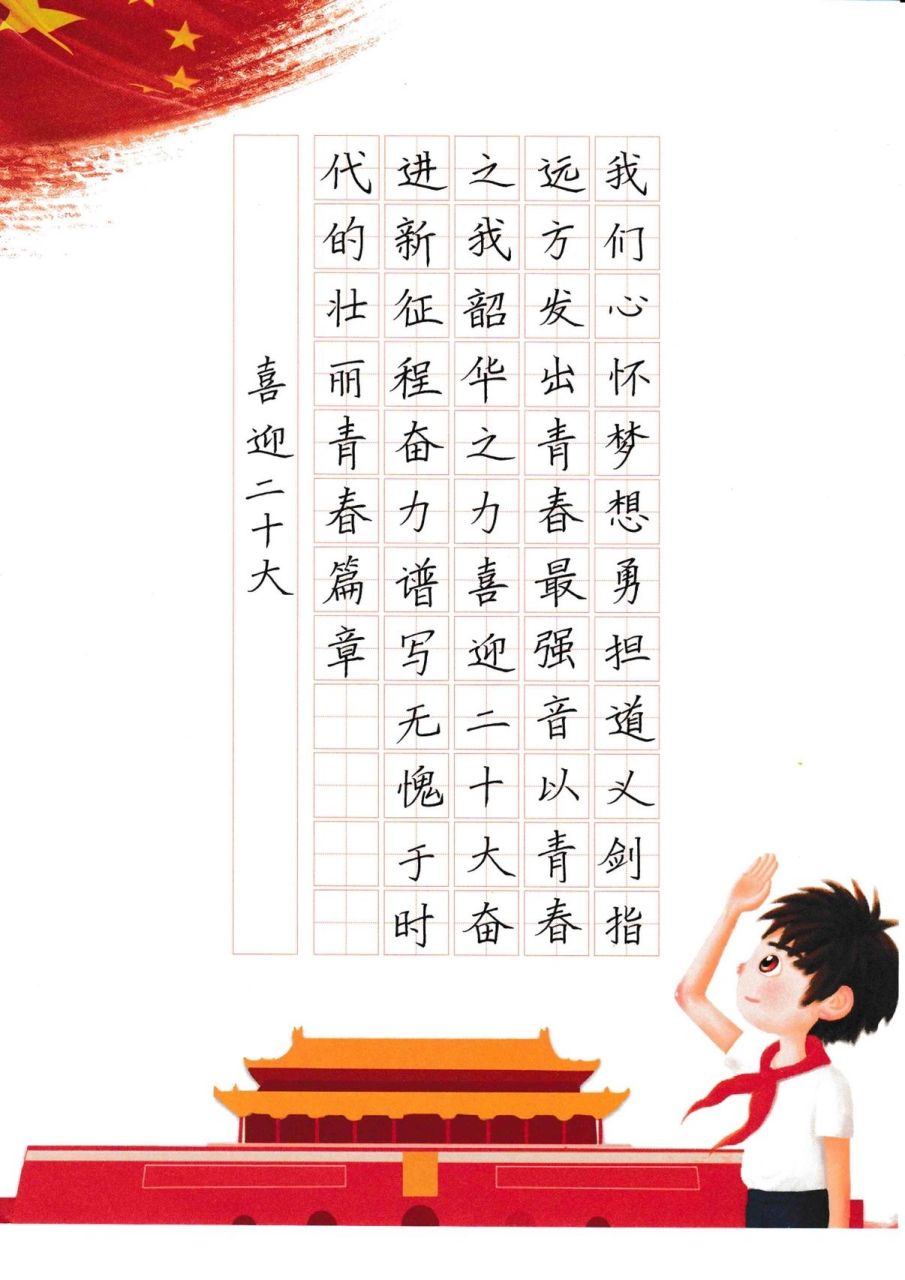 我们心怀梦想勇担道义剑指
远方发出青春最强音以青春
之我韶华之力喜迎二十大奋
进新征程奋力谱写无愧于时
代的壮丽青春篇章
喜迎二十大